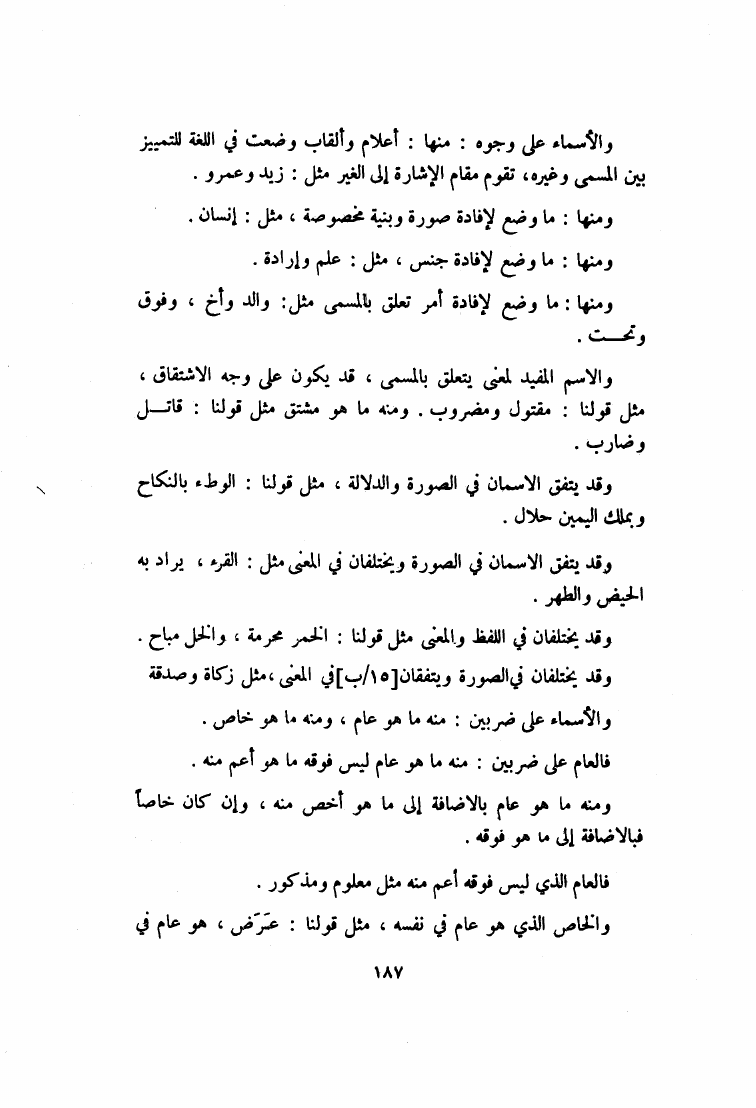 والأسماء على وجوه : منها : أعلام وألقاب وضعت في اللغة للتمييز
بين المسمى وغيره، تقوم مقام الإشارة إلى الغير مثل : زيد وعمرو .
ومنها : ما وضع لإفادة صورة وبنية مخصوصة ، مثل : إنسان .
ومنها : ما وضع لإفادة جنس ، مثل : علم وإرادة .
ومنها : ما وضع لإفادة أمر تعلق بالمسمى مثل: والد وأخ ، وفوق
وتحـــت .
والاسم المفيد لمعنى يتعلق بالمسمى ، قد يكون على وجه الاشتقاق ،
مثل قولنا : مقتول ومضروب . ومنه ما هو مشتق مثل قولنا : قاتـــل
وضارب .
وقد يتفق الاسمان في الصورة والدلالة ، مثل قولنا : الوطء بالنكاح
وبملك اليمين حلال .
وقد يتفق الاسمان في الصورة ويختلفان في المعنى مثل : القرء ، يراد به
الحيض والطهر .
وقد يختلفان في اللفظ والمعنى مثل قولنا : الخمر محرمة ، والخل مباح .
وقد يختلفان في الصورة ويتفقان [١٥/ب] في المعنى ، مثل زكاة وصدقة
والأسماء على ضربين : منه ما هو عام ، ومنه ما هو خاص .
فالعام على ضربين : منه ما هو عام ليس فوقه ما هو أعم منه .
ومنه ما هو عام بالاضافة إلى ما هو أخص منه ، وإن كان خاصاً
فبالاضافة إلى ما هو فوقه .
فالعام الذي ليس فوقه أعم منه مثل معلوم ومذكور .
والخاص الذي هو عام في نفسه ، مثل قولنا : عَرَض ، هو عام في
١٨٧